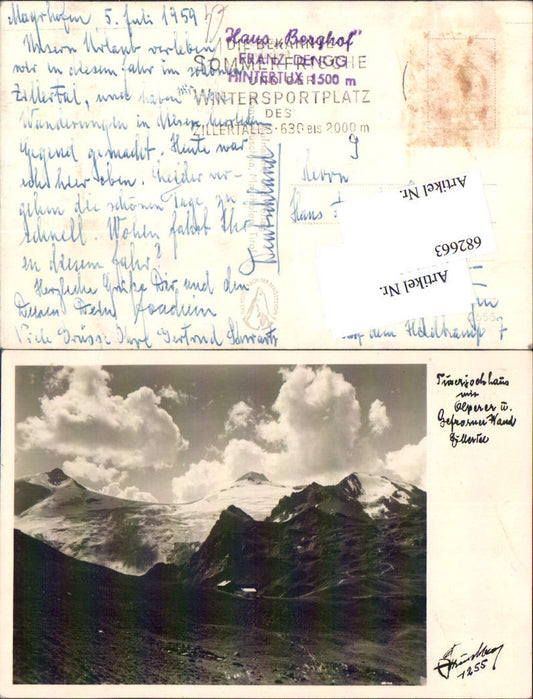 Mayrhofen 5. Juli 1959
Unsern Urlaub verleben
wir in diesem Jahr im schönen
Zillertal, und haben
Wanderungen in dieser herrlichen
Gegend gemacht. Heute war
ich hier oben. Leider ver-
gehen die schönen Tage zu
schnell. Wohin fahrt Ihr
in diesem Jahr?
Herzliche Grüße Dir und den
Deinen Dein Joachim
Viele Grüsse Ihre Gertrud Schwartz
"Haus Berghof"
FRANZ DENGG
HINTERTUX 1500 m
DIE BEKANNTE
SOMMERFRISCHE
UND DER
WINTERSPORTPLATZ
DES
ZILLERTALS · 630 BIS 2000 m
Herrn
Hans
Deutschland
Artikel Nr.
682663
Artikel Nr.
auf dem Heidkamp 7
Tuxerjochhaus
mit
Olperer u.
Gefrorner Wand
Zillertal
1255